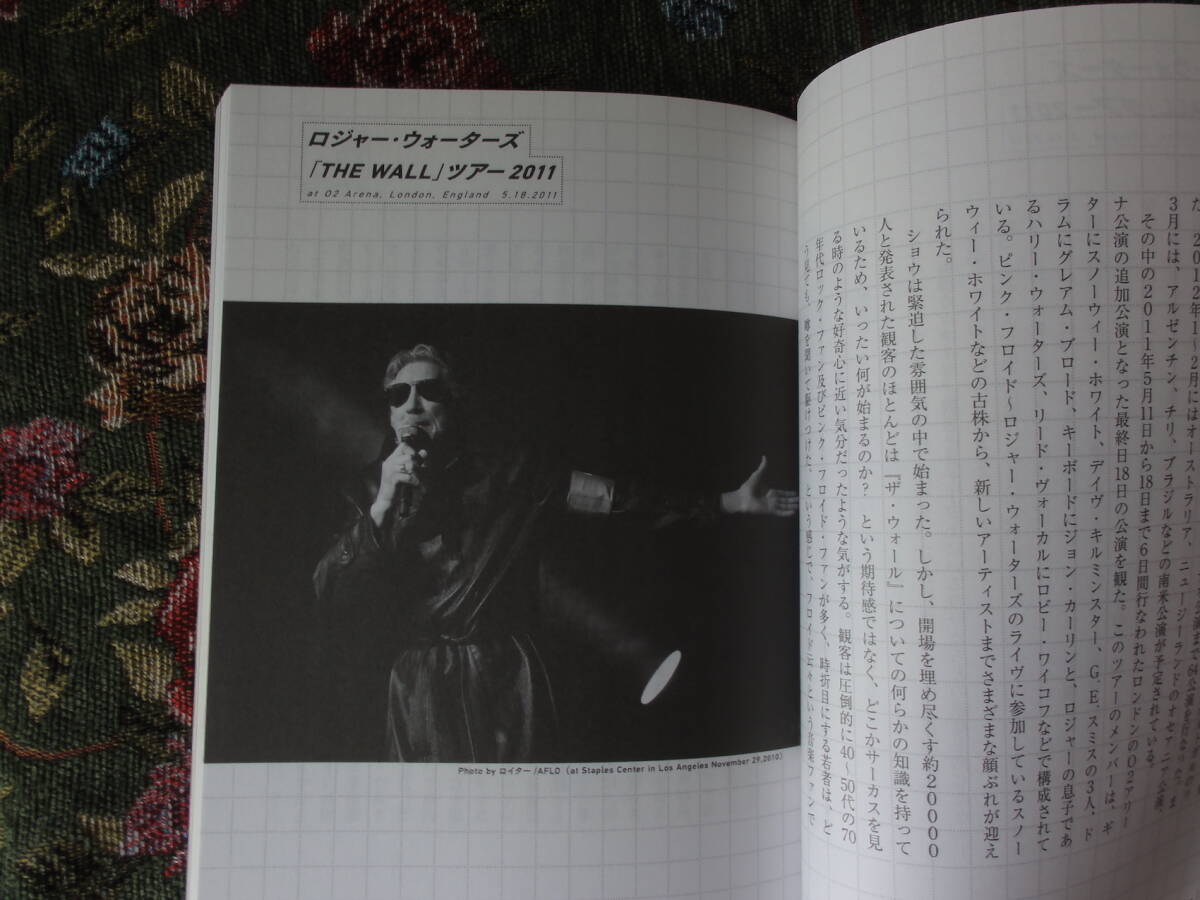 ロジャー・ウォーターズ
「THE WALL」ツアー 2011
at O2 Arena, London, England 5.18.2011
Photo by ロイター/AFLO (at Staples Center in Los Angeles November 29,2010)
た。2012年1〜2月にはオーストラリア、ニュージーランドのオセアニア公演、
3月には、アルゼンチン、チリ、ブラジルなどの南米公演が予定されている。
その中の2011年5月11日から18日まで6日間行なわれたロンドンのO2アリー
ナ公演の追加公演となった最終日18日の公演を観た。このツアーのメンバーは、ギ
ターにスノーウィー・ホワイト、デイヴ・キルミンスター、G.E.スミスの3人、ド
ラムにグレアム・ブロード、キーボードにジョン・カーリンと、ロジャーの息子であ
るハリー・ウォーターズ、リード・ヴォーカルにロビー・ワイコフなどで構成されて
いる。ピンク・フロイド〜ロジャー・ウォーターズのライヴに参加しているスノー
ウィー・ホワイトなどの古株から、新しいアーティストまでさまざまな顔ぶれが迎え
られた。
ショウは緊迫した雰囲気の中で始まった。しかし、開場を埋め尽くす約20000
人と発表された観客のほとんどは『ザ・ウォール』についての何らかの知識を持って
いるため、いったい何が始まるのか? という期待感ではなく、どこかサーカスを見
る時のような好奇心に近い気分だったような気がする。観客は圧倒的に40〜50代の70
年代ロック・ファン及びピンク・フロイド・ファンが多く、時折目にする若者は、ど
う見ても、噂を聞いて駆けつけた、という感じで、フロイド云々という音楽ファンで